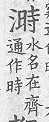 溡
水名在齊
通作時